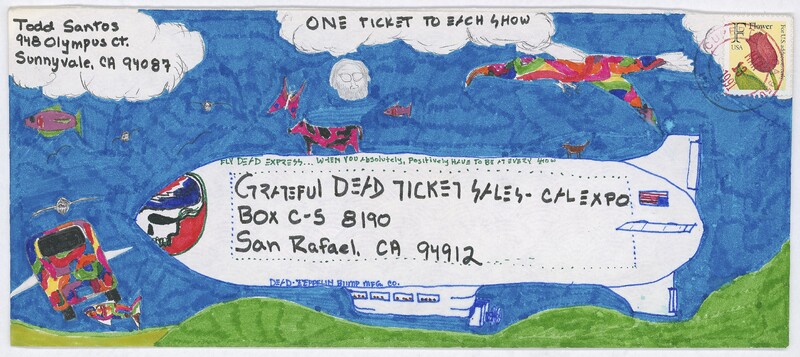 Todd Santos
948 Olympus Ct.
Sunnyvale, CA 94087
ONE TICKET TO EACH SHOW
F Flower
USA
For U.S.
FLY DEAD EXPRESS... WHEN YOU Absolutely, Positively HAVE TO BE AT EVERY SHOW
GRATEFUL DEAD TICKET SALES- CAL EXPO
BOX C-S 8190
San Rafael, CA 94912
DEAD-ZEPPELIN BLIMP MFG. CO.